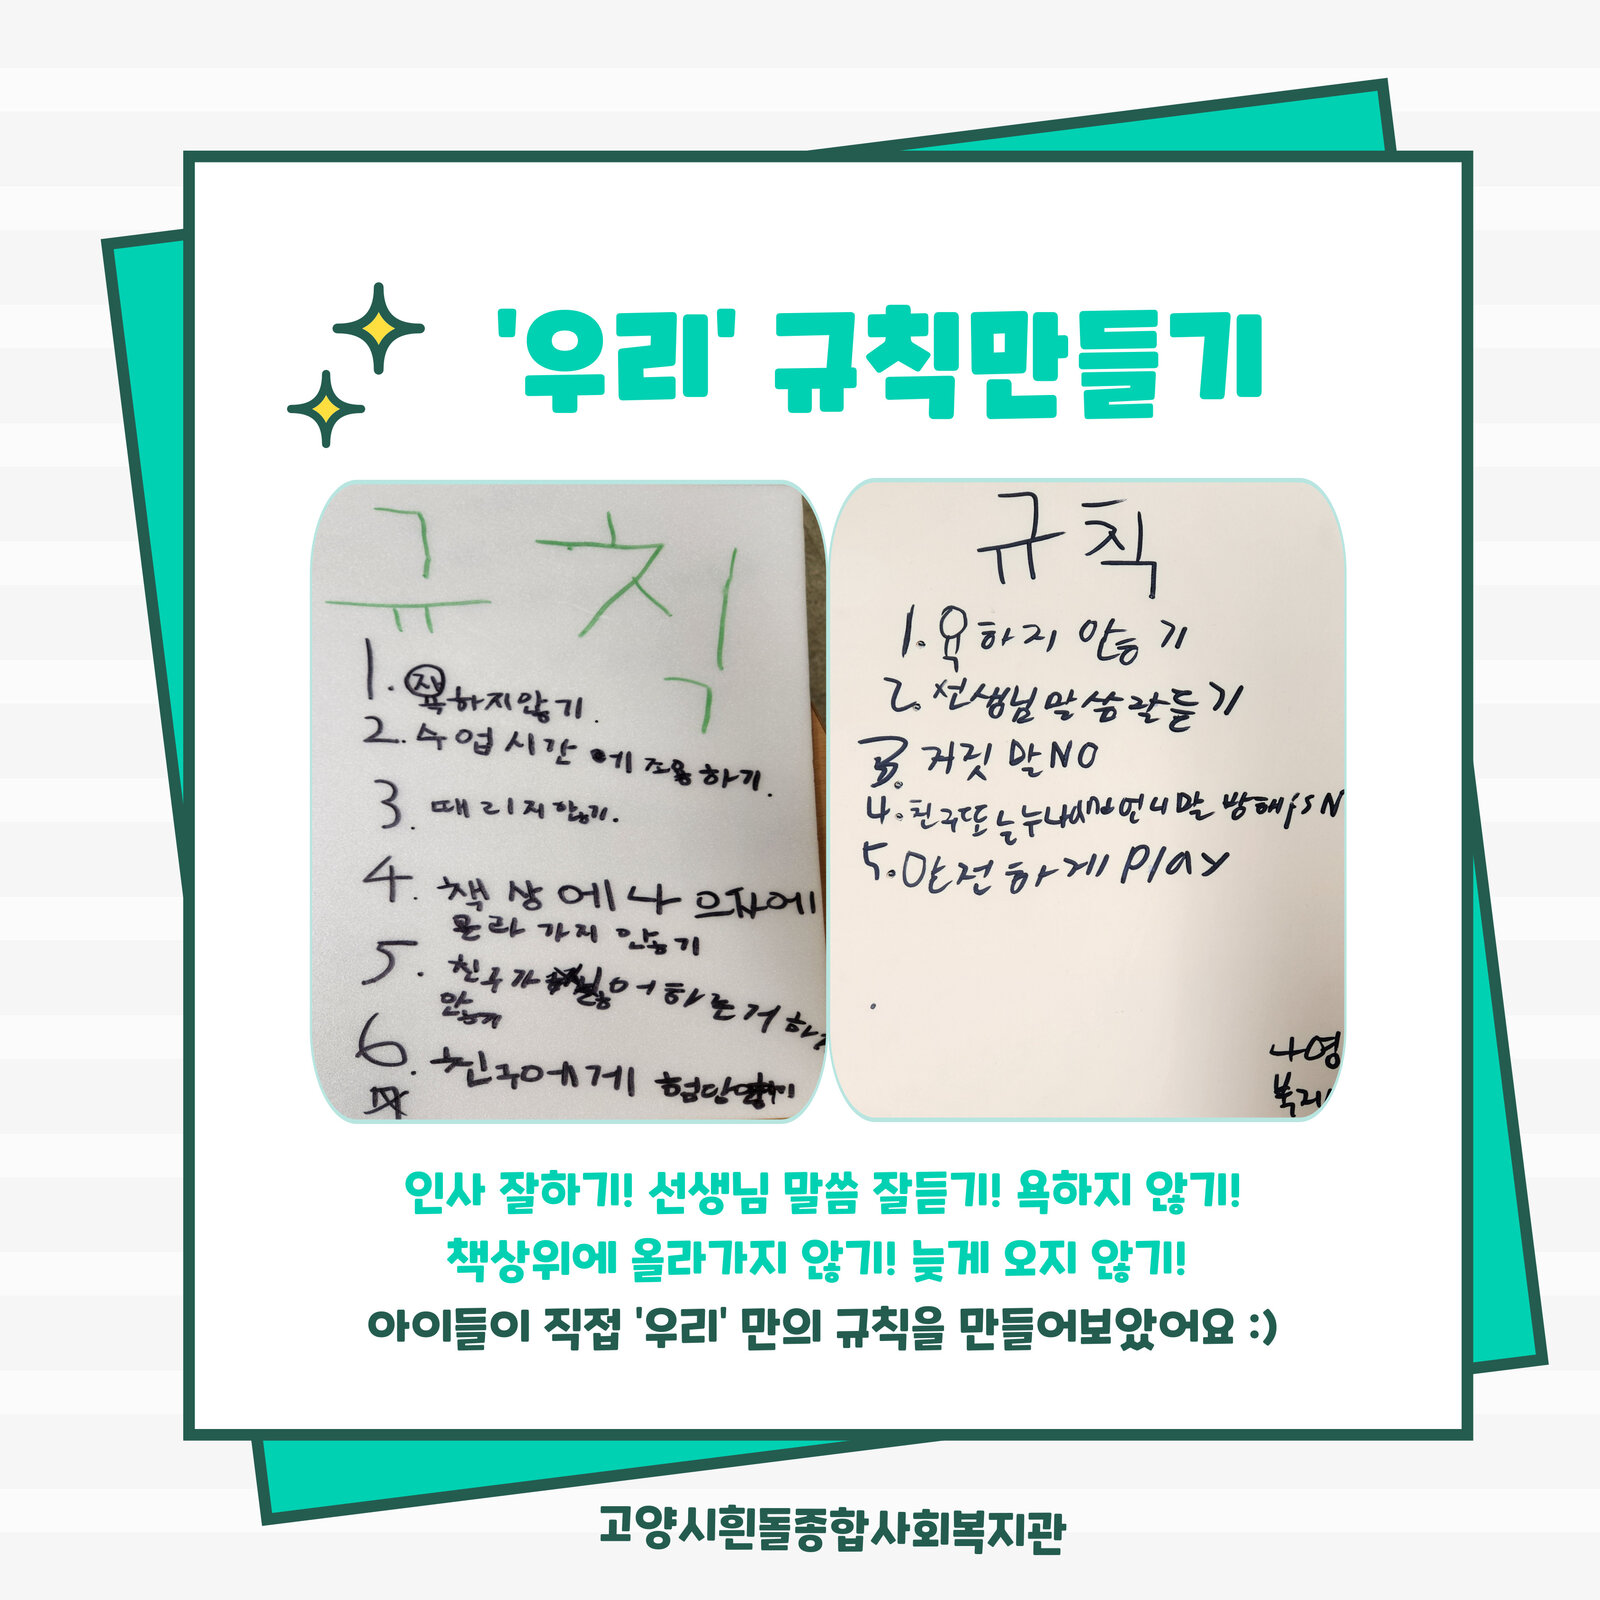 '우리' 규칙만들기
규칙
1. 욕하지않기.
2. 수업시간에 조용하기.
3. 때리지않기.
4. 책상에나 으자에
올라가지 않기
5. 친구가 싫어하는거 하
않기
6. 친구에게 험담않기
규칙
1. 욕하지 안능기
2. 선생님 말씀 잘듣기
3. 거짓말 NO
4. 친구또는 누나 언니 말 방해is N
5. 안전하게 Play
나영
복지
인사 잘하기! 선생님 말씀 잘듣기! 욕하지 않기!
책상위에 올라가지 않기! 늦게 오지 않기!
아이들이 직접 '우리' 만의 규칙을 만들어보았어요 :)
고양시흰돌종합사회복지관